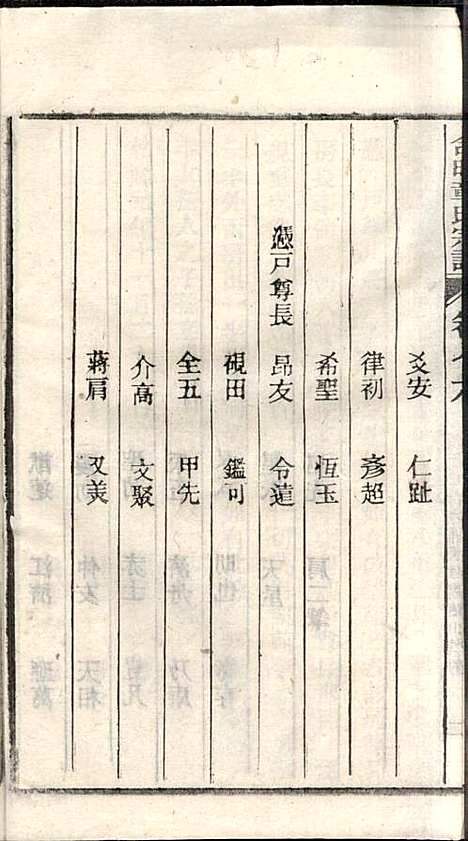 爻安　仁趾
律初　彥超
希聖　恆玉
憑戶尊長　昂友　令蓮
硯田　鑑可
全五　甲先
介高　文聚
蔣肩　又美